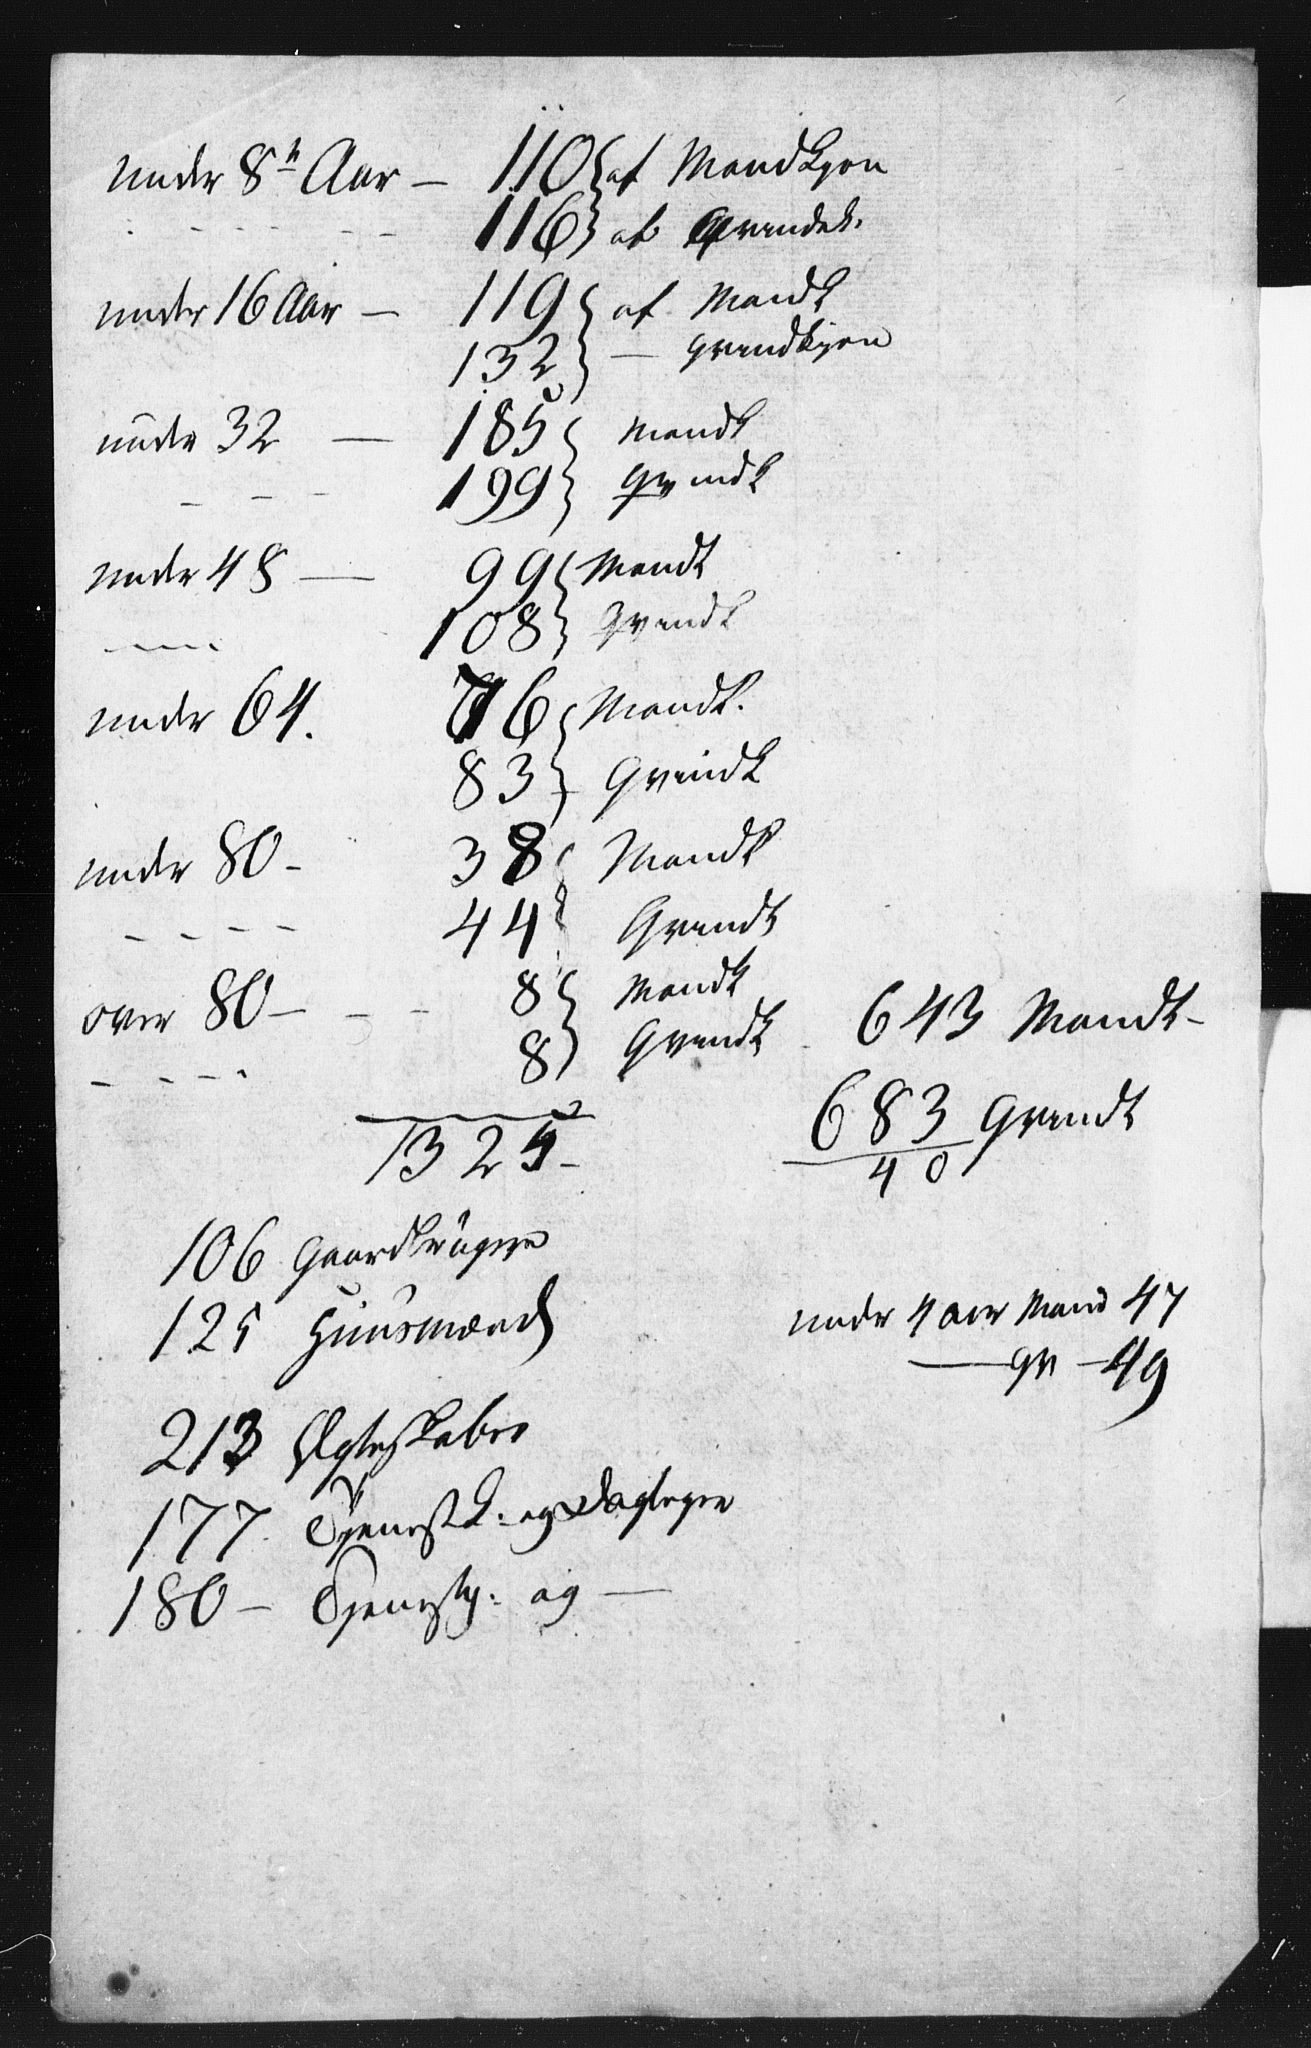 under 8te Aar — 110 } af Mandkjøn
- - - - - - 116 } af Qvindek.
under 16 Aar — 119 } af Mandk
132 } — Qvindkjøn
under 32 — 185 } Mandk
- - - 199 } Qvindk
under 48 — 99 } Mandk
- - - 108 } Qvindk
under 64. 76 } Mandk.
83 } Qvindk
under 80 - 38 } Mandk
- - - - 44 } Qvindk
over 80 - - - 8 } Mandk
- - - - 8 } Qvindk
643 Mandk -
683 Qvindk
40
1325 -
106 Gaardbrugere
125 Huusmænd
under 4 Aar Mand 47
— Qv — 49
213 Ægteskaber
177. Tjenestk: og Daglejere
180 — Tjenestp: og —